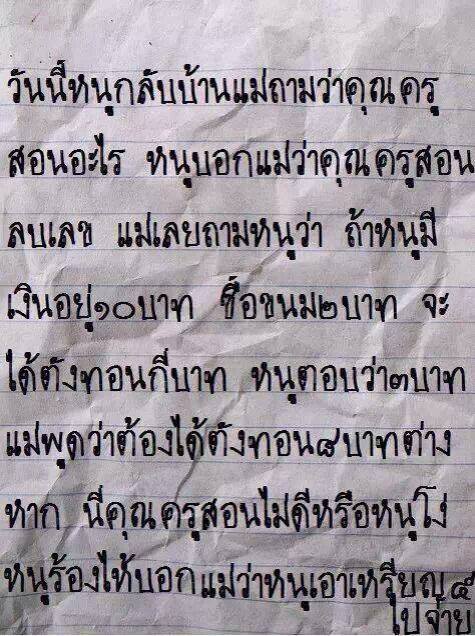 วันนี้หนูกลับบ้านแม่ถามว่าคุณครู
สอนอะไร หนูบอกแม่ว่าคุณครูสอน
ลบเลข แม่เลยถามหนูว่า ถ้าหนูมี
เงินอยู่๑๐บาท ซื้อขนม๒บาท จะ
ได้ตังทอนกี่บาท หนูตอบว่า๓บาท
แม่พูดว่าต้องได้ตังทอน๘บาทต่าง
หาก นี่คุณครูสอนไม่ดีหรือหนูโง่
หนูร้องไห้บอกแม่ว่าหนูเอาเหรียญ๕
ไปจ่าย